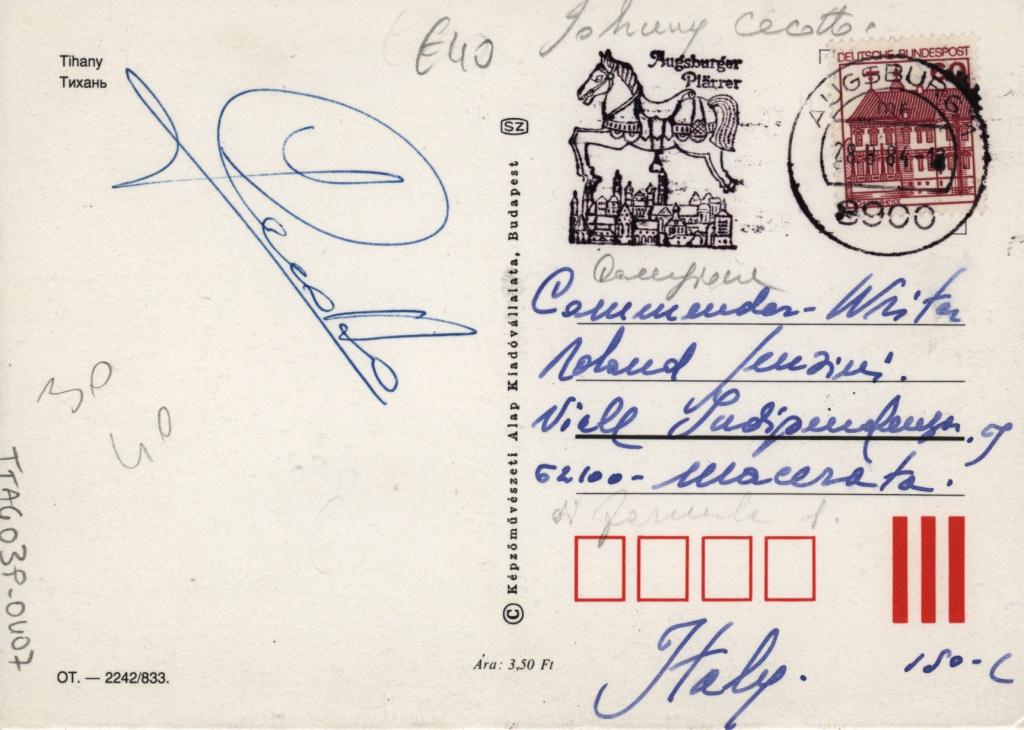 Tihany
Тихань
E40
Johnny Cecotto.
Augsburger
Plärrer
DEUTSCHE BUNDESPOST
AUGSBURG 1
28.8.84
8900
SZ
© Képzőművészeti Alap Kiadóvállalata, Budapest
Commender- Writer
Roland
Viale Indipendenza,
62100- Macerata.
di formula 1.
Italy.
150-L
30
40
TTAG03P-0407
OT. — 2242/833.
Ára: 3,50 Ft